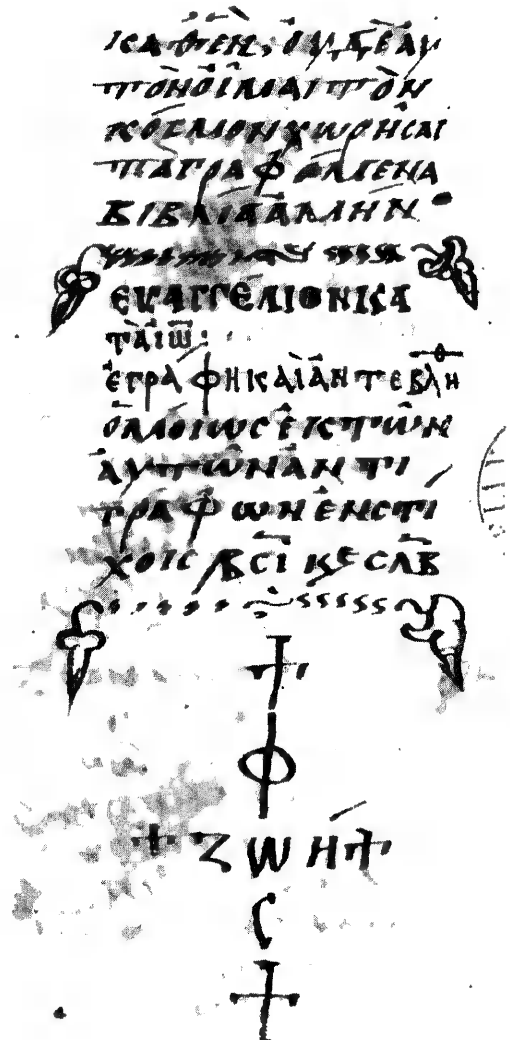 ΚΑΘΕΝ, ΟΥΔΕΑΥ
ΤΟΝΟΙΜΑΙΤΟΝ
ΚΟCΜΟΝΧΩΡΗCΑΙ
ΤΑΓΡΑΦΟΜΕΝΑ
ΒΙΒΛΙΑΑΜΗΝ·
ΕΥΑΓΓΕΛΙΟΝΚΑ
ΤΑΙΩ̅:
ΕΓΡΑΦΗΚΑΙΑΝΤΕΒΛΗΘ
ΟΜΟΙΩCΕΚΤΩΝ
ΑΥΤΩΝΑΝΤΙ
ΓΡΑΦΩΝΕΝCΤΙ
ΧΟΙC ͵ΒCΙ ΚΕ CΛΒ
✝
Φ
✝ ΖΩΗ ✝
C
✝